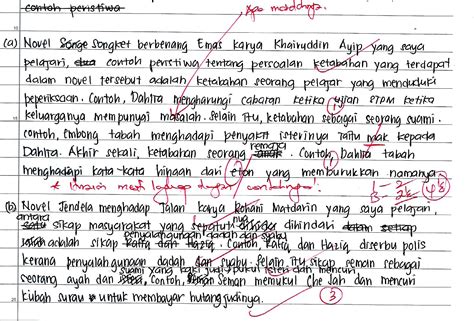 contoh peristiwa
Apa masalahnya.
(a) Novel Songket berbenang Emas karya Khairuddin Ayip yang saya
pelajari, contoh peristiwa tentang persoalan ketabahan yang terdapat
dalam novel tersebut adalah ketabahan seorang pelajar yang menduduki
peperiksaan. Contoh, Dahlia mengharungi cabaran ketika ujian STPM ketika
keluarganya mempunyai masalah. Selain itu, ketabahan sebagai seorang suami.
contoh, Embong tabah menghadapi penyakit isterinya iaitu mak kepada
Dahlia. Akhir sekali, ketabahan seorang remaja. Contoh, Dahlia tabah
menghadapi kata-kata hinaan dari eton yang memburukkan namanya.
(b) Novel Jendela menghadap Jalan karya Rohani Matdarin yang saya pelajari,
antara sikap masyarakat yang dihindari
adalah sikap penyalahgunaan dadah dan syabu. Contoh, Rafiq dan Haziq diserbu polis
kerana penyalahgunaan dadah dan syabu. Selain itu, sikap seman sebagai
seorang ayah dan suami yang kaki judi, pukul isteri dan mencuri.
Contoh, Seman memukul Che Jah dan mencuri
kubah surau untuk membayar hutang judinya.
3